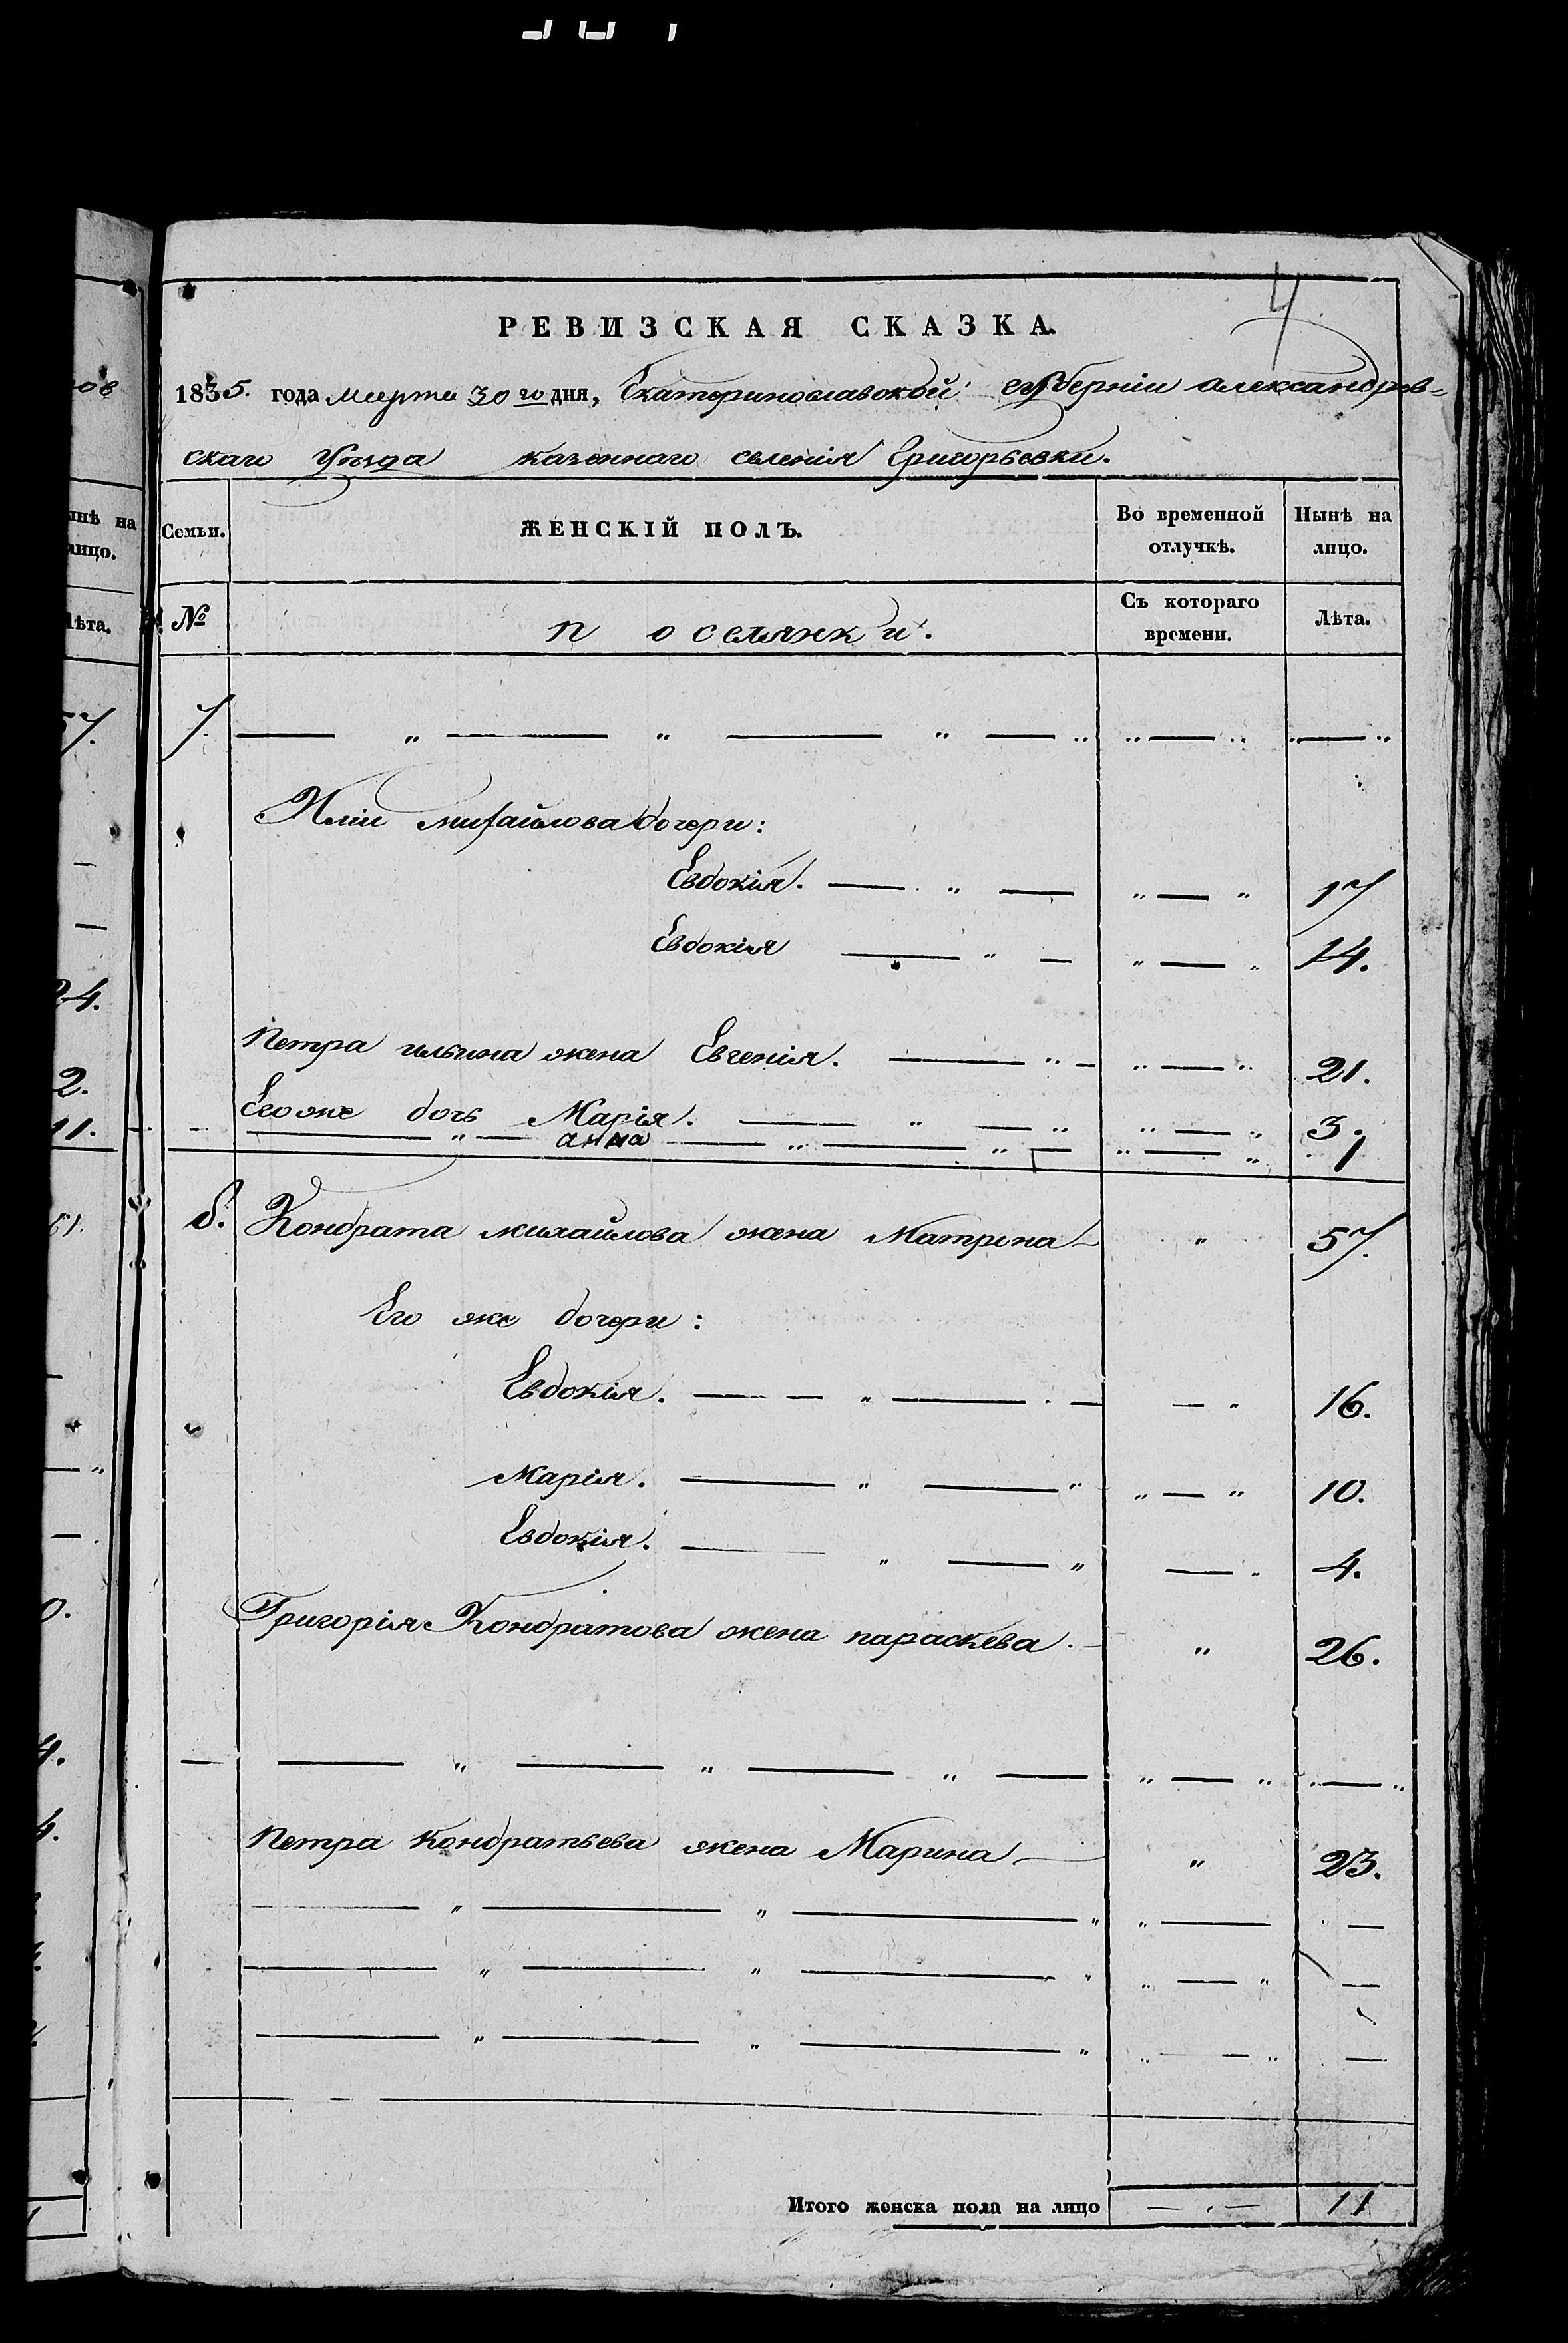 4
РЕВИЗСКАЯ СКАЗКА.
1835. года Марта 30го дня, Екатеринославской губерніи Александров=
скаго Уѣзда казеннаго селенія Григорьевки.
Семьи. ЖЕНСКІЙ ПОЛЪ. Во временной отлучкѣ. Нынѣ на лицо.
№ поселянки. Съ котораго времени. Лѣта.
7.
Иліи Михайлова дочери:
Евдокія. 17
Евдокія 14.
Петра ильина жена Евгенія. 21.
Его же дочь Марія. 3.
анна 1
8. Кондрата михайлова жена Матрена 57.
Его же дочери:
Евдокія. 16.
Марія. 10.
Евдокія. 4.
Григорія Кондратова жена параскева. 26.
Петра Кондратьева жена Марина 23.
Итого женска пола на лицо 11